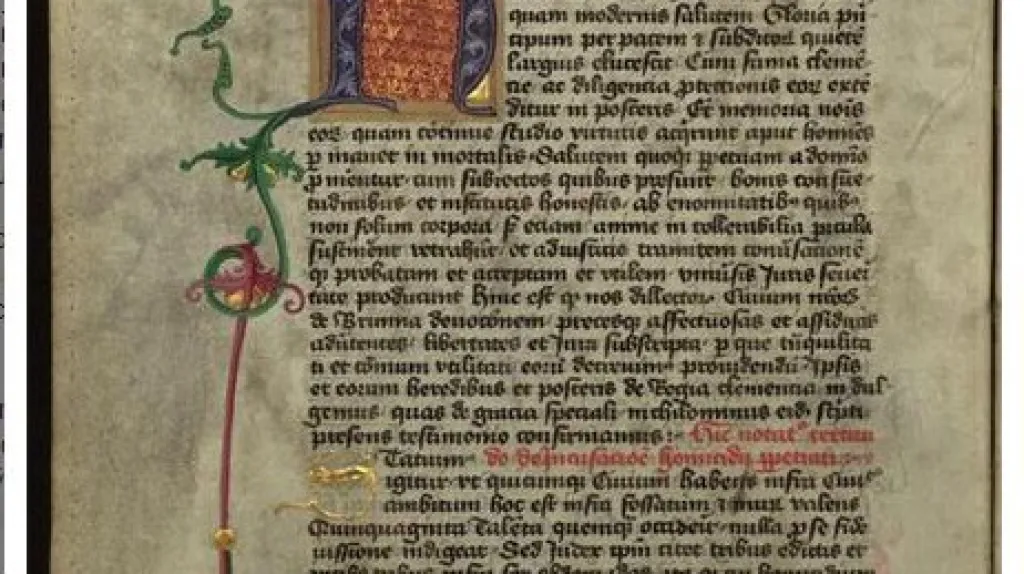 quam modernis salutem Gloria pn̄
cipum per pacem ⁊ subditoꝝ quietē
largius elucescat Cum fama cleme-
tie ac diligencia ꝓtectionis eoꝝ exte
ditur in posteris Et memoria noīs
eoꝝ quam cōtinuo studio virtutis acq̄runt aput homīes
ꝑ manet in mortalis Salutem quoqꝫ ꝑpetuam a domīo
ꝓ mentur cum subiectos quibus presunt bonis consue-
tudinibus et institutis honestis ab enormitatibꝰ quibꝰ
non solum corpora sꝫ eciam anime in tollerabilia pīcula
sustinent retrahūt et ad iusticie tramitem conūsacionē
qꝫ probatam et acceptam et vtilem Juris seūei
tate producunt Hinc est qꝫ nos dillectoꝝ Ciuium nr̄oꝝ
de Brunna deuotōnem precesqꝫ affectuosas et assiduas
aduertentes libertates et Jura subscripta ꝑ que tn̄quilita
ti et cōmuni vtilitati eoꝝ decreuimꝰ prouidendū Ipsis
et eorum heredibus et posteris de Regia clemencia indul-
gemus quas de gracia speciali nichilominus eisdē scpti
presens testimonio confirmamus : Hic notatꝰ
de homicidij ꝑpetrati
Tatuimꝰ
igitur vt quicunqꝫ Ciuium habens infra Ciuiꝰ
ambitum hoc est infra fossatum ⁊ mur valens
Quinquaginta Talēta quemqꝫ occiderit nulla ꝓ se fide
iussione indigeat Sed Judex ipm̄ citet tribus edictis et